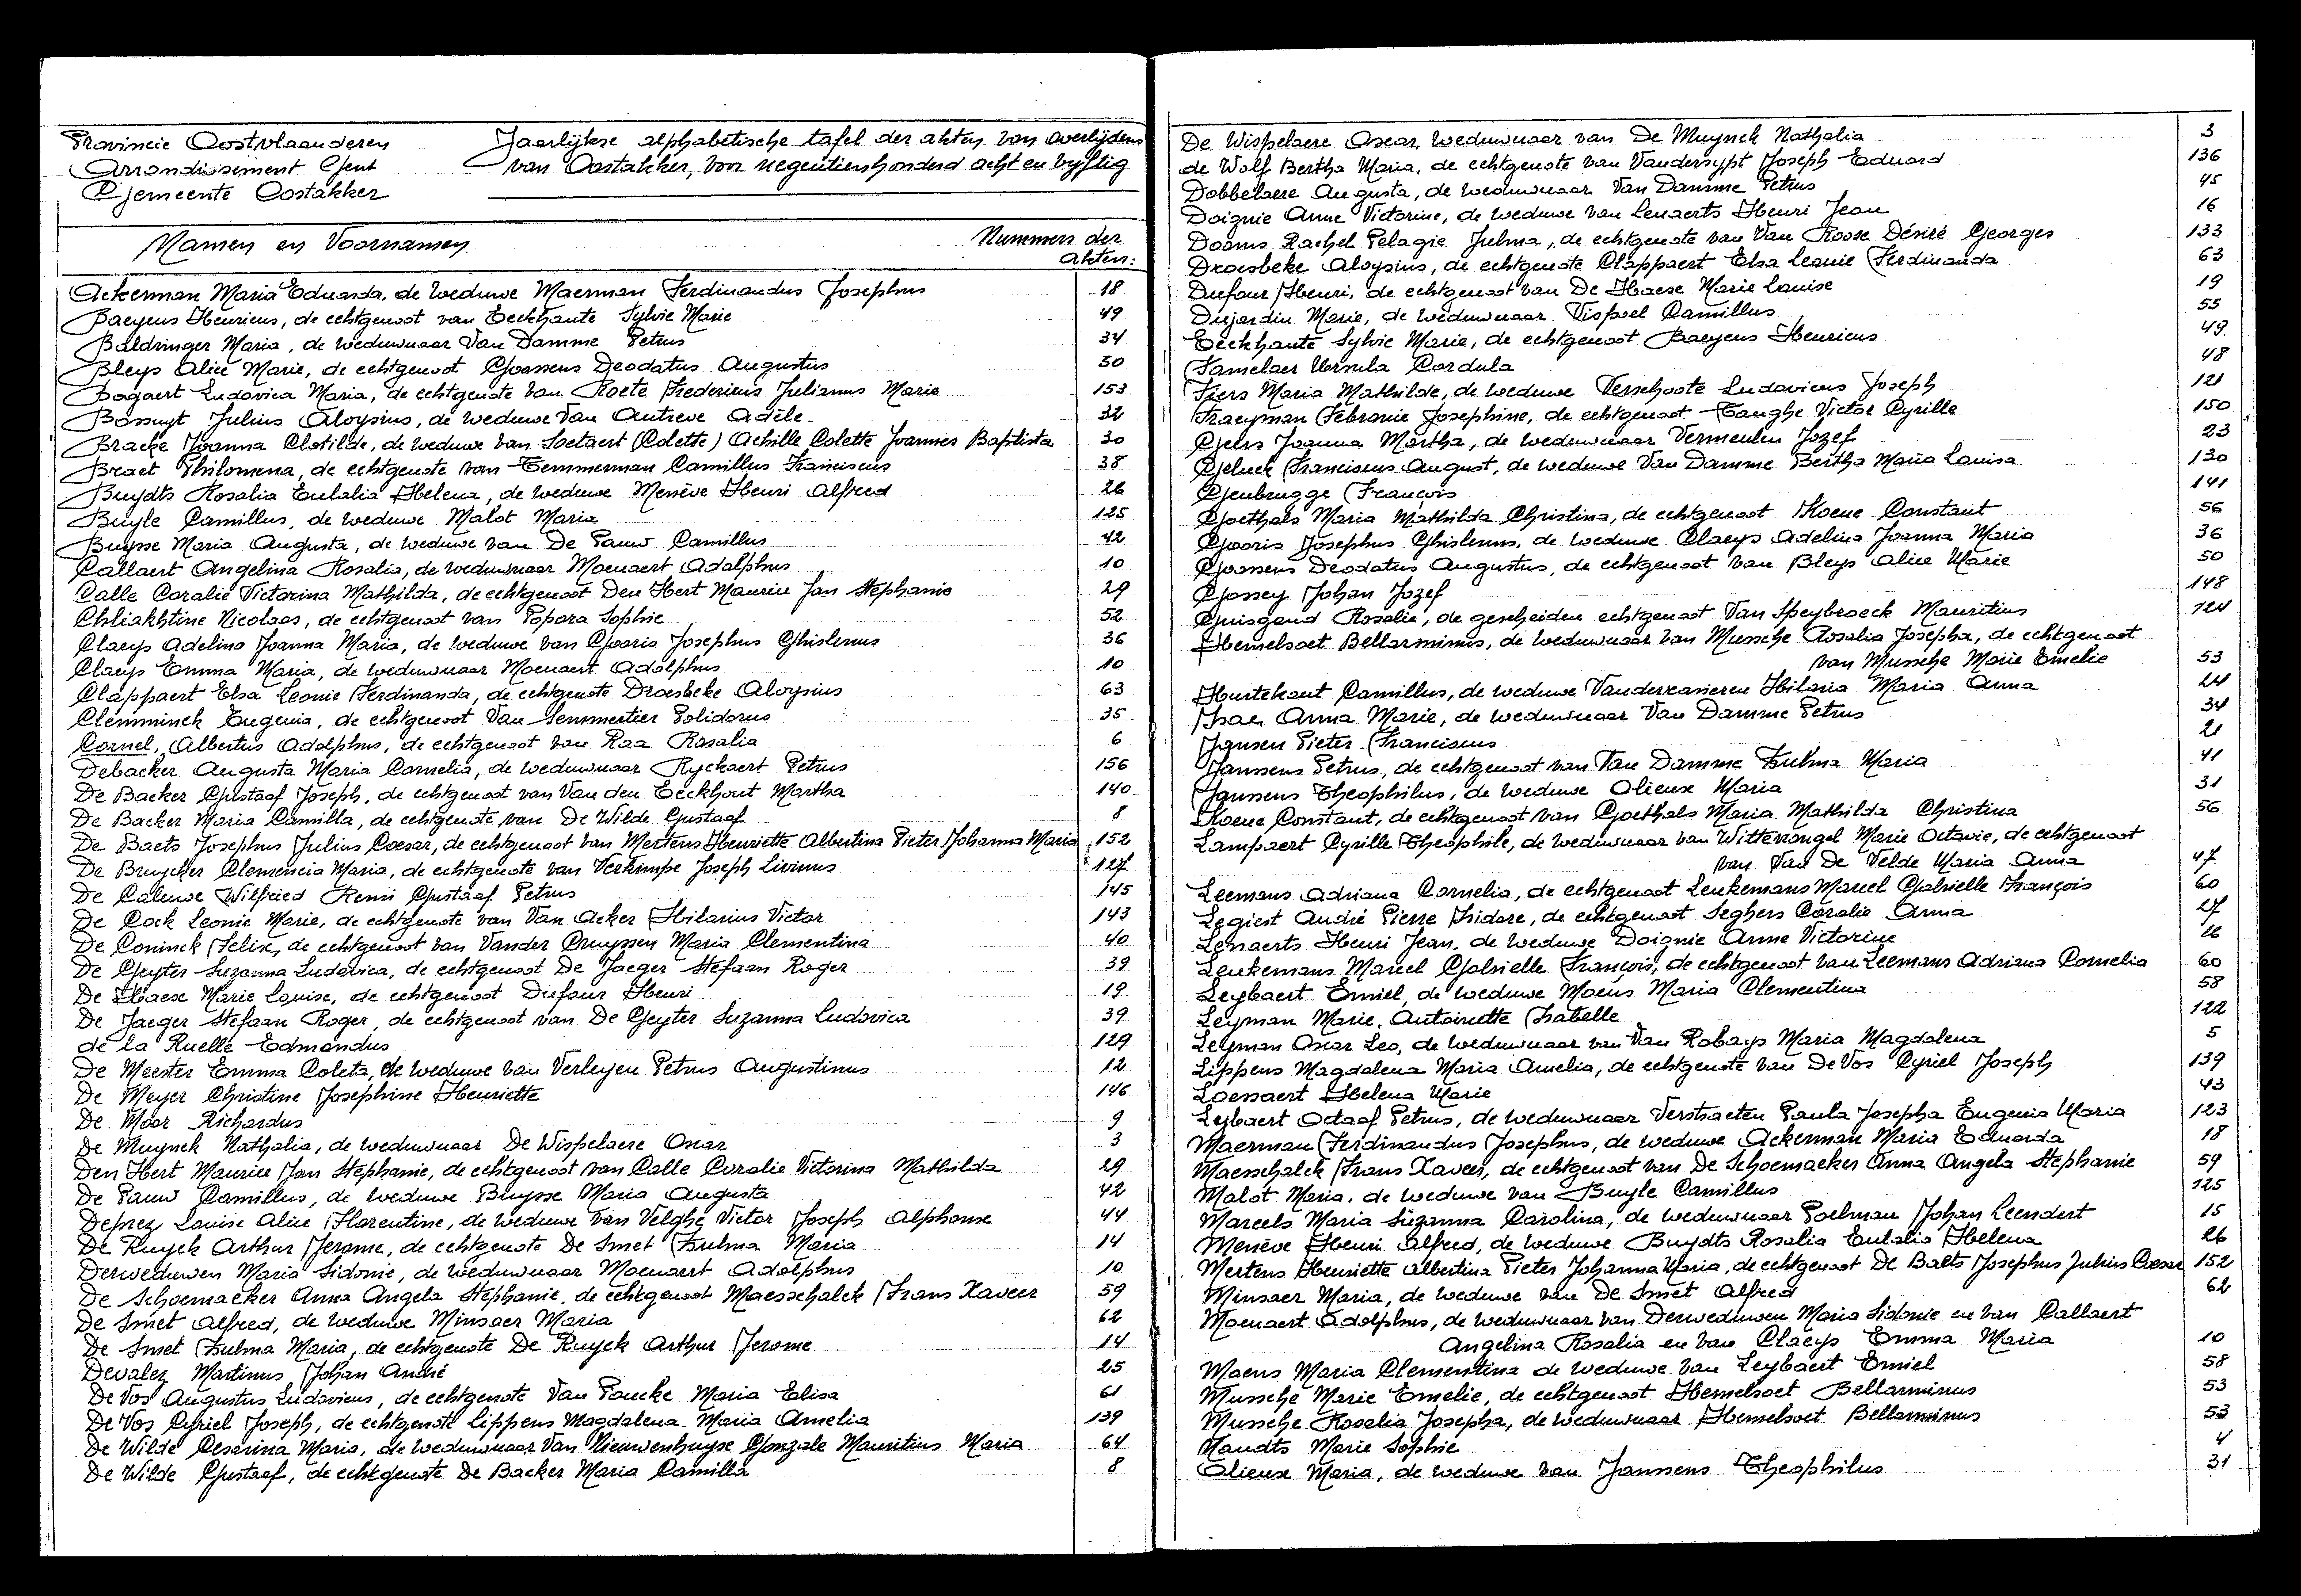 Provincie Oostvlaanderen
Arrondissement Gent
Gemeente Oostakker
Jaarlijkse alphabetische tafel der akten van overlijdens
van Oostakker, voor negentienhonderd acht en vyftig
Namen en Voornamen
Nummers der
akten:
Ackerman Maria Eduarda, de weduwe Maerman Ferdinandus Josephus 18
Baeyens Henricus, de echtgenoot van Eeckhaute Sylvie Marie 49
Baldringer Maria, de weduwnaar Van Damme Petrus 34
Bleys Alice Marie, de echtgenoot Goossens Deodatus Augustus 50
Bogaert Ludovica Maria, de echtgenote van Roete Fredericus Julianus Marie 153
Bossuyt Julius Aloysius, de weduwe Van Autreve Adèle 32
Bracke Joanna Clotilde, de weduwe van Soetaert (Colette) Achille Colette Joannes Baptista 30
Braet Philomena, de echtgenote van Temmerman Camillus Franciscus 38
Buydts Rosalia Eulalia Helena, de weduwe Menève Henri Alfred 26
Buyle Camillus, de weduwe Malot Maria 125
Buysse Maria Augusta, de weduwe van De Pauw Camillus 42
Callaert Angelina Rosalia, de weduwnaar Moenaert Adolphus 10
Calle Coralie Victorina Mathilda, de echtgenoot Den Hert Maurice Jan Stephanie 29
Chliakhtine Nicolaas, de echtgenoot van Popora Sophie 52
Claeys Adelina Joanna Maria, de weduwe van Gooris Josephus Ghislenus 36
Claeys Emma Maria, de weduwnaar Moenaert Adolphus 10
Clappaert Elsa Leonie Ferdinanda, de echtgenote Droesbeke Aloysius 63
Clemminck Eugenia, de echtgenoot Van Semmertier Polidorus 35
Cornel, Albertus Adolphus, de echtgenoot van Raa Rosalia 6
Debacker Augusta Maria Cornelia, de weduwnaar Ryckaert Petrus 156
De Backer Gustaaf Joseph, de echtgenoot van Van den Eeckhout Martha 140
De Backer Maria Camilla, de echtgenote van De Wilde Gustaaf 8
De Baets Josephus Julius Caesar, de echtgenoot van Mertens Henriette Albertina Pieter Johanna Maria 152
De Bruycker Clemencia Maria, de echtgenote van Verkimpe Joseph Livinus 127
De Caluwe Wilfried Remi Gustaaf Petrus 145
De Cock Leonie Marie, de echtgenote van Van Acker Hilarius Victor 143
De Coninck Felix, de echtgenoot van Vander Cruyssen Maria Clementina 40
De Geyter Suzanna Ludovica, de echtgenoot De Jaeger Stefaan Roger 39
De Haese Marie Louise, de echtgenoot Dufour Henri 19
De Jaeger Stefaan Roger, de echtgenoot van De Geyter Suzanna Ludovica 39
de la Ruelle Edmondus 129
De Meester Emma Coleta, de weduwe van Verleyen Petrus Augustinus 12
De Meyer Christine Josephine Henriette 146
De Moor Richardus 9
De Muynck Nathalia, de weduwnaar De Wispelaere Oscar 3
Den Hert Maurice Jan Stephanie, de echtgenoot van Calle Coralie Victorina Mathilda 29
De Pauw Camillus, de weduwe Buysse Maria Augusta 42
Deprez Louise Alice Florentine, de weduwe van Velghe Victor Joseph Alphonse 44
De Ruyck Arthur Jerome, de echtgenote De Smet Zulma Maria 14
Derweduwen Maria Sidonie, de weduwnaar Moenaert Adolphus 10
De Schoemaeker Anna Angela Stephanie, de echtgenoot Maesschalck Frans Xaveer 59
De Smet Alfred, de weduwe Minsaer Maria 62
De Smet Zulma Maria, de echtgenote De Ruyck Arthur Jerome 14
Devalez Martinus Johan André 25
De Vos Augustus Ludovicus, de echtgenote Van Poucke Maria Elisa 61
De Vos Cyriel Joseph, de echtgenote Lippens Magdalena Maria Amelia 139
De Wilde Cesarina Maria, de weduwnaar Van Nieuwenhuyse Gonzale Mauritius Maria 64
De Wilde Gustaaf, de echtgenote De Backer Maria Camilla 8
De Wispelaere Oscar, weduwnaar van De Muynck Nathalia 3
de Wolf Bertha Maria, de echtgenote van Vandersypt Joseph Eduard 136
Dobbelaere Augusta, de weduwnaar Van Damme Petrus 45
Doignie Anne Victorine, de weduwe van Lenaerts Henri Jean 16
Dooms Rachel Pelagie Julma, de echtgenote van Van Roose Désiré Georges 133
Droesbeke Aloysius, de echtgenote Clappaert Elsa Leonie Ferdinanda 63
Dufour Henri, de echtgenoot van De Haese Marie Louise 19
Dujardin Marie, de weduwnaar Vispoel Camillus 55
Eeckhaute Sylvie Marie, de echtgenoot Baeyens Henricus 49
Famelaer Ursula Cordula 48
Fiers Maria Mathilde, de weduwe Verschoote Ludovicus Joseph 121
Fraeyman Febronie Josephine, de echtgenoot Tanghe Victor Cyrille 150
Geers Joanna Martha, de weduwnaar Vermeulen Jozef 23
Geluck Franciscus August, de weduwe Van Damme Bertha Maria Louisa 130
Genbrugge François 141
Goethals Maria Mathilda Christina, de echtgenoot Koene Constant 56
Gooris Josephus Ghislenus, de weduwe Claeys Adelina Joanna Maria 36
Goossens Deodatus Augustus, de echtgenoot van Bleys Alice Marie 50
Gossey Johan Jozef 148
Guisgand Rosalie, de gescheiden echtgenoot Van Speybroeck Mauritius 124
Hemelsoet Bellarminus, de weduwnaar van Mussche Rosalia Josepha, de echtgenoot
van Mussche Marie Emelie 53
Hurtekant Camillus, de weduwe Vanderxasieren Hilaria Maria Anna 24
Isac Anna Marie, de weduwnaar Van Damme Petrus 34
Jansen Pieter Franciscus 21
Janssens Petrus, de echtgenoot van Van Damme Zulma Maria 41
Janssens Theophilus, de weduwe Olieux Maria 31
Koene Constant, de echtgenoot van Goethals Maria Mathilda Christina 56
Lampaert Cyrille Theophile, de weduwnaar van Witterongel Marie Octavie, de echtgenoot
van Van De Velde Maria Anna 47
Leemans Adriana Cornelia, de echtgenoot Leukemans Marcel Gabrielle François 60
Legiest André Pierre Isidore, de echtgenoot Seghers Coralie Anna 27
Lenaerts Henri Jean, de weduwe Doignie Anne Victorine 16
Leukemans Marcel Gabrielle François, de echtgenoot van Leemans Adriana Cornelia 60
Leybaert Emiel, de weduwe Moens Maria Clementina 58
Leyman Marie, Antoinette Isabelle 122
Leyman Oscar Leo, de weduwnaar van Van Robays Maria Magdalena 5
Lippens Magdalena Maria Amelia, de echtgenote van De Vos Cyriel Joseph 139
Loessaert Helena Marie 43
Lybaert Odaaf Petrus, de weduwnaar Verstraeten Paula Josepha Eugenia Maria 123
Maerman Ferdinandus Josephus, de weduwe Ackerman Maria Eduarda 18
Maesschalck Frans Xaveer, de echtgenoot van De Schoemaeker Anna Angela Stephanie 59
Malot Maria, de weduwe van Buyle Camillus 125
Marcels Maria Suzanna Carolina, de weduwnaar Poelman Johan Leendert 15
Menève Henri Alfred, de weduwe Buydts Rosalia Eulalia Helena 26
Mertens Henriette Albertina Pieter Johanna Maria, de echtgenoot De Baets Josephus Julius Caesar 152
Minsaer Maria, de weduwe van De Smet Alfred 62
Moenaert Adolphus, de weduwnaar van Derweduwen Maria Sidonie en van Callaert
Angelina Rosalia en van Claeys Emma Maria 10
Moens Maria Clementina de weduwe van Leybaert Emiel 58
Mussche Marie Emelie, de echtgenoot Hemelsoet Bellarminus 53
Mussche Rosalia Josepha, de weduwnaar Hemelsoet Bellarminus 53
Naudts Marie Sophie 4
Olieux Maria, de weduwe van Janssens Theophilus 31